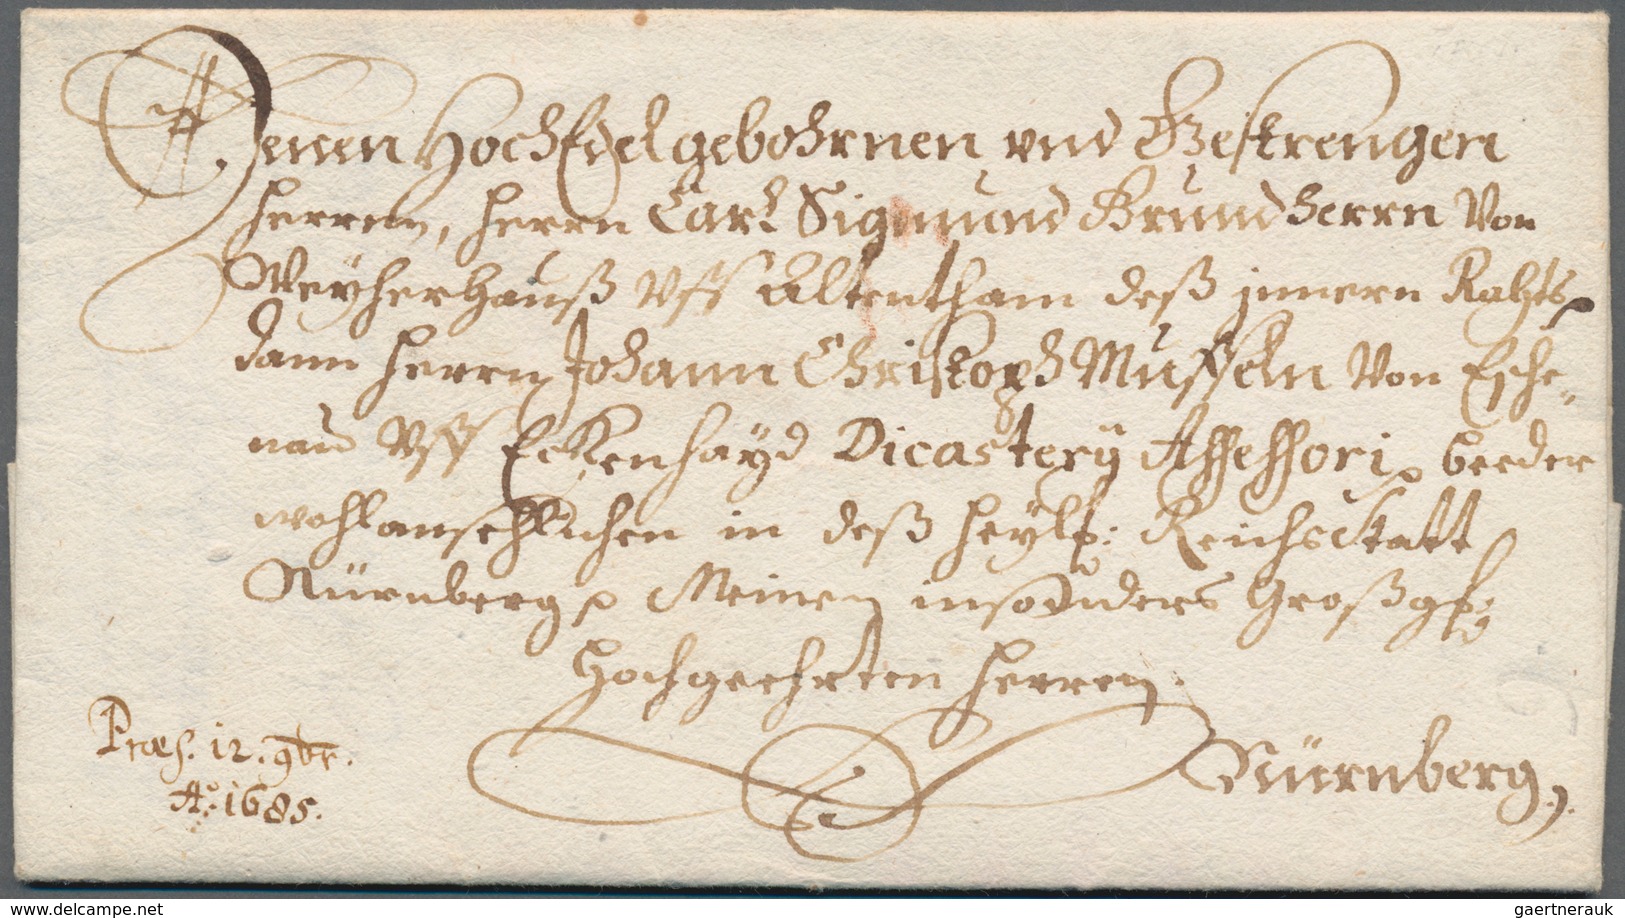 Denen HochEdelgebohrnen vnd Gestrengen
Herren, Herrn Carl Sigmund Grundherrn Von
Weyherhauß Vff Altentham deß jnnern Rahts
dann Herrn Johann Christoph Muffeln Von Esche„
nau Vff Eckenhayd Dicasterÿ Assessori beeder
wohlansehlichen in deß Heyl: Reichs Statt
Nürnberg Meinen insonders Großg:
Hochgeehrten Herren.
Nürnberg.
Præs. 12. 9br.
Aº: 1685.
www.delcampe.net
gaertnerauk